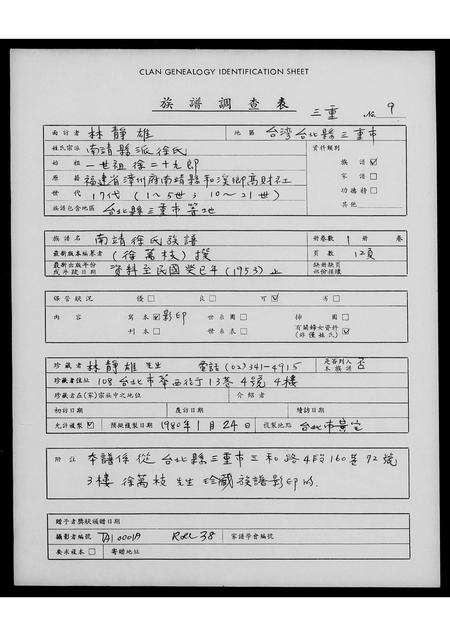 CLAN GENEALOGY IDENTIFICATION SHEET
族譜調查表 三重 No. 9
面訪者 林靜雄 地區 台湾台北縣三重市
姓氏宗派 南靖縣派徐氏 資料類別
始祖 一世祖徐二十九郎 族譜☑
原籍 福建省漳州府南靖縣和溪鄉高財社 家譜☐
世代 17代 (1~5世; 10~21世) 功德榜☐
族譜包含地區 台北縣三重市等地 其他
族譜名 南靖徐氏族譜 冊卷數 1 冊 卷
最新版本編纂者 (徐萬枝)撰 頁數 12頁
最新出版年份或斗發日期 資料至民國癸巳年(1953)止
保管狀況 優☐ 良☐ 可☑ 劣☐
內容 寫本☑影印 世系圖☐ 揷圖☐
刊本☐ 世系表☐ 有關婦女資料(非僅姓氏)☑
珍藏者 林靜雄先生 電話(02)341-4915 是否列入本族譜 否
珍藏者住址 108 台北市華西街13巷4號4樓
珍藏者在(家)宗族中之地位 介紹者
初訪日期 複訪日期 續訪日期
允許複製☑ 預擬複製日期 1980年1月24日 複製地點 台北市
附註 本譜係從台北縣三重市三和路4段160巷92號
3樓徐萬枝先生珍藏族譜影印的.
贈予者獎狀頒贈日期
攝影者編號 TAI0001A Roll 38 家譜學會編號
要求複本☐ 寄贈地址